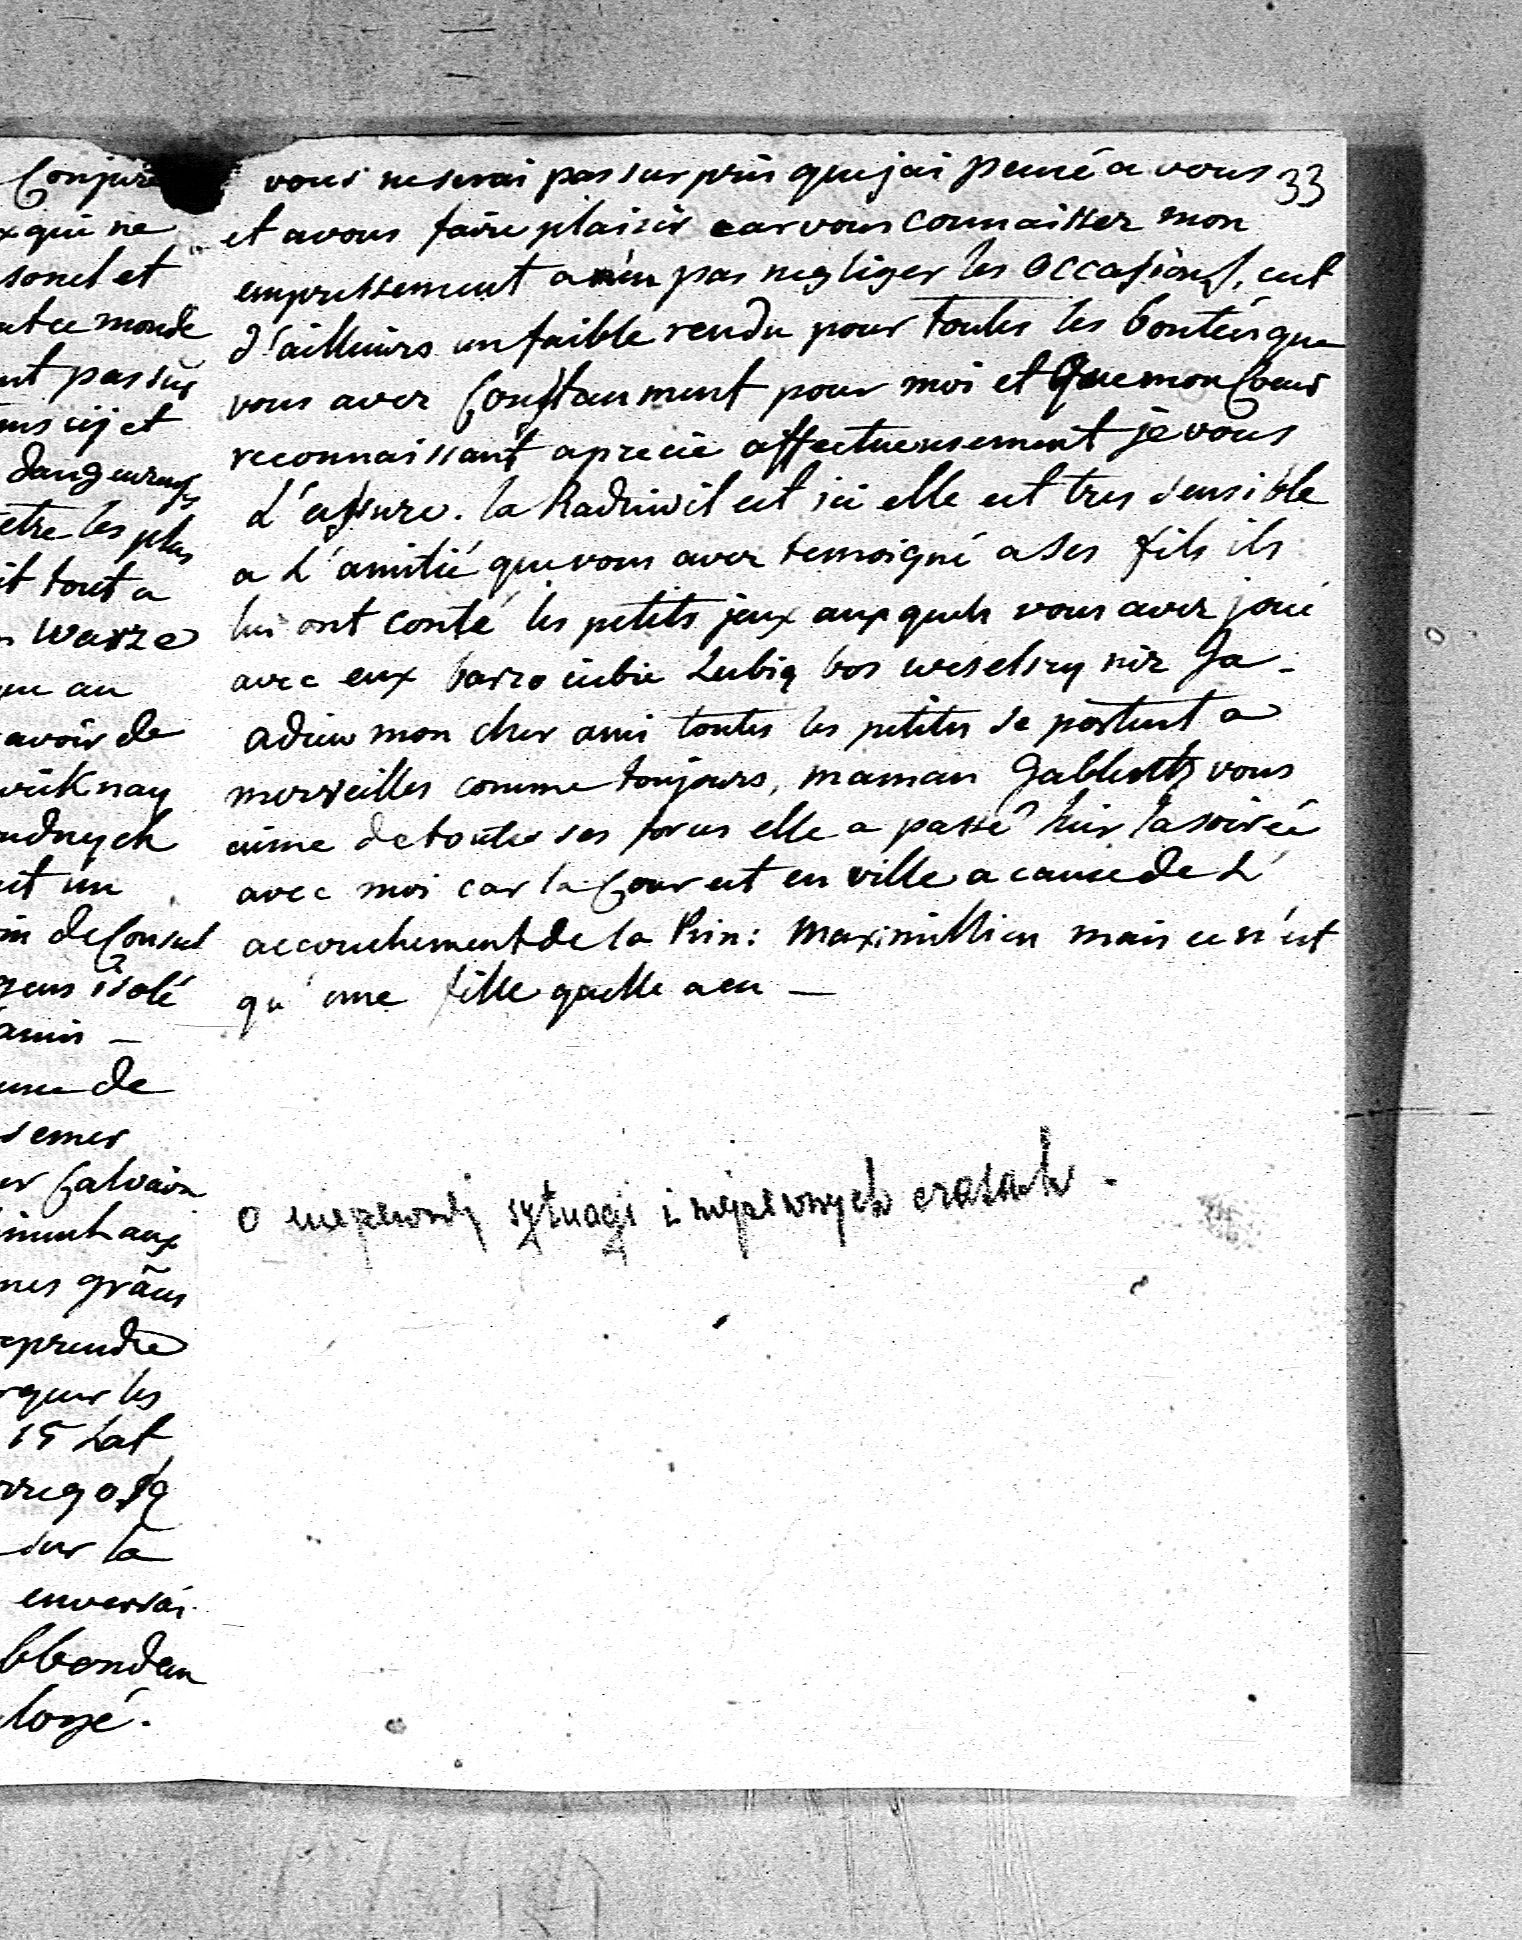 Conjure
qui ne
sonel et
ce monde
nt pas sur
et
dangeureux
etre les plus
it tout a
Warze
au
avoir de
nay
udnych
it un
de Consul
gens isolé
amis —
de
semer

aux
mes grães
prendre
les
15 Lat

sur la
enversai

loyé.
33
vous neserai pas surpris que jai pensé a vous
et avous faire plaisir car vous connaissez mon
empressement a n'en pas negliger les occasions, cest
d'ailleurs un faible rendu pour toutes les bontés que
vous avez Constamment pour moi et Que mon Coeur
reconnaissant aprecie affectueusement je vous
L'assure. la Radziwil est ici elle est tres sensible
a L'amitié que vous avez temoigné a Ses fils ils
lui ont conté les petits jeux auxquels vous avez joué
avec eux barzo cibie Lubią bos weselszy niz Ja -
adieu mon cher ami toutes les petites se portent a
merveilles comme toujours, maman Gablentz vous
aime de toutes ses forces elle a passé hier la soirée
avec moi car la Cour est en ville a cause de L'
accouchement de la Prin: Maximillien mais ce n'est
qu'une fille quelle a eu —
o niepewnej sytuacji i niepewnych czasach.